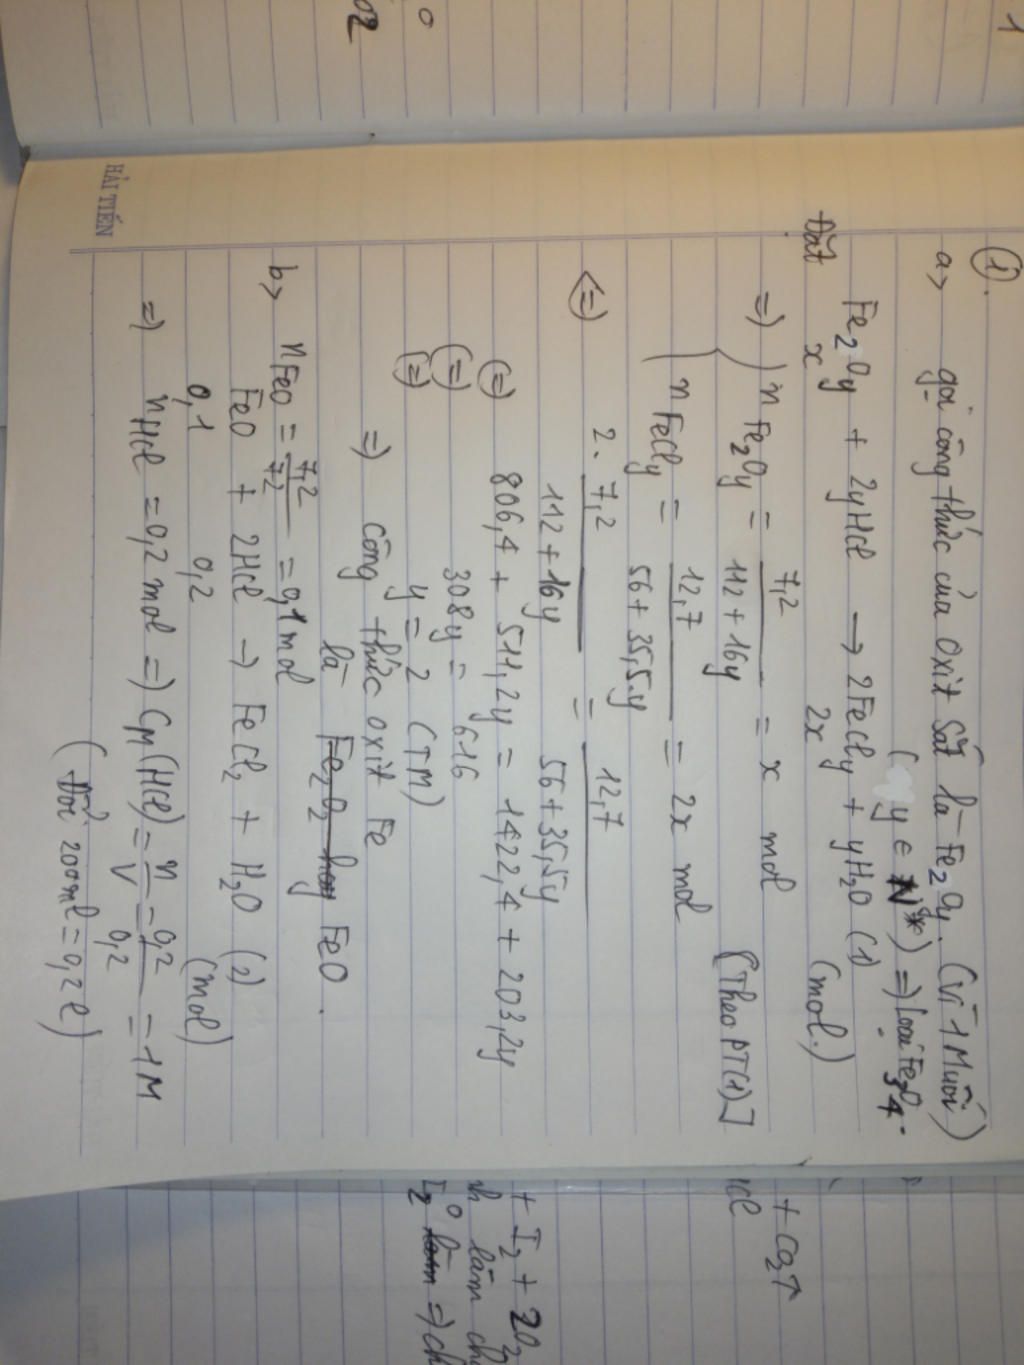 02
1
HẢI TIẾN
①.
a> gọi công thức của oxit Sắt là Fe₂Oy. (vì 1 Muối)
( y ∈ N*) => loại Fe₃O₄.
Fe₂Oy + 2yHCl → 2FeCly + yH₂O (1)
Đặt x 2x (mol.)
=> { nFe₂Oy = 7,2 / (112 + 16y) = x mol
nFeCly = 12,7 / (56 + 35,5y) = 2x mol
[Theo PT(1)]
<=> 2. 7,2 / (112 + 16y) = 12,7 / (56 + 35,5y)
(=) 806,4 + 511,2y = 1422,4 + 203,2y
(=) 308y = 616
(=) y = 2 (TM)
=> công thức oxit Fe
là Fe₂O₂ hay FeO.
b> nFeO = 7,2 / 72 = 0,1 mol
FeO + 2HCl → FeCl₂ + H₂O (2)
0,1 0,2 (mol)
=> nHCl = 0,2 mol => CM(HCl) = n / V = 0,2 / 0,2 = 1M
(Đổi 200ml = 0,2l)
+ CO₂↑
HCl
+ I₂ + 2O₂
làm
I₂